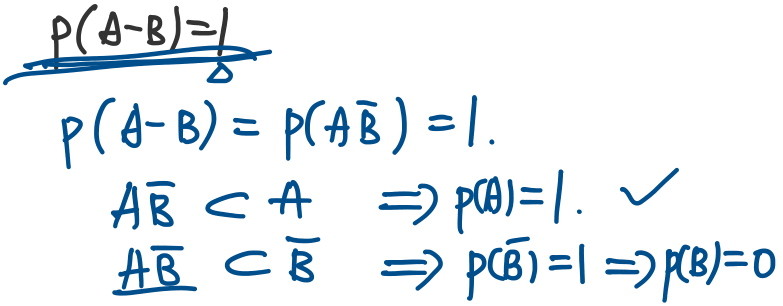 P(A-B)=1
P(A-B)=P(AB̅)=1.
AB̅ ⊂ A ⇒ P(A)=1. ✓
AB̅ ⊂ B̅ ⇒ P(B̅)=1 ⇒ P(B)=0